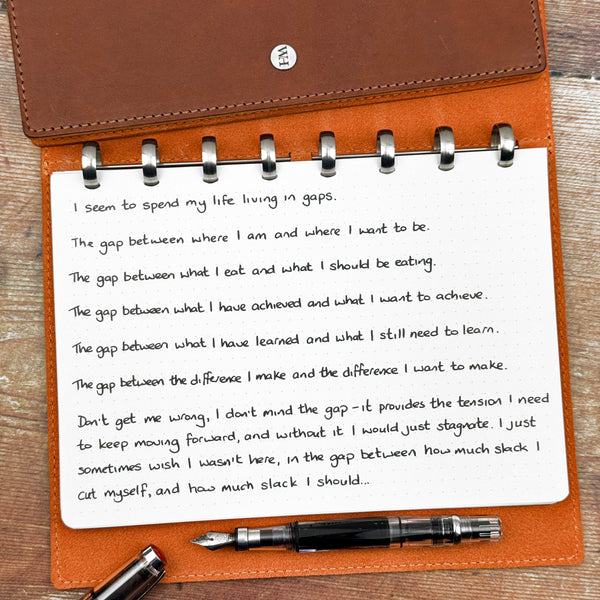 I seem to spend my life living in gaps.
The gap between where I am and where I want to be.
The gap between what I eat and what I should be eating.
The gap between what I have achieved and what I want to achieve.
The gap between what I have learned and what I still need to learn.
The gap between the difference I make and the difference I want to make.
Don't get me wrong, I don't mind the gap - it provides the tension I need
to keep moving forward, and without it I would just stagnate. I just
sometimes wish I wasn't here, in the gap between how much slack I
cut myself, and how much slack I should...